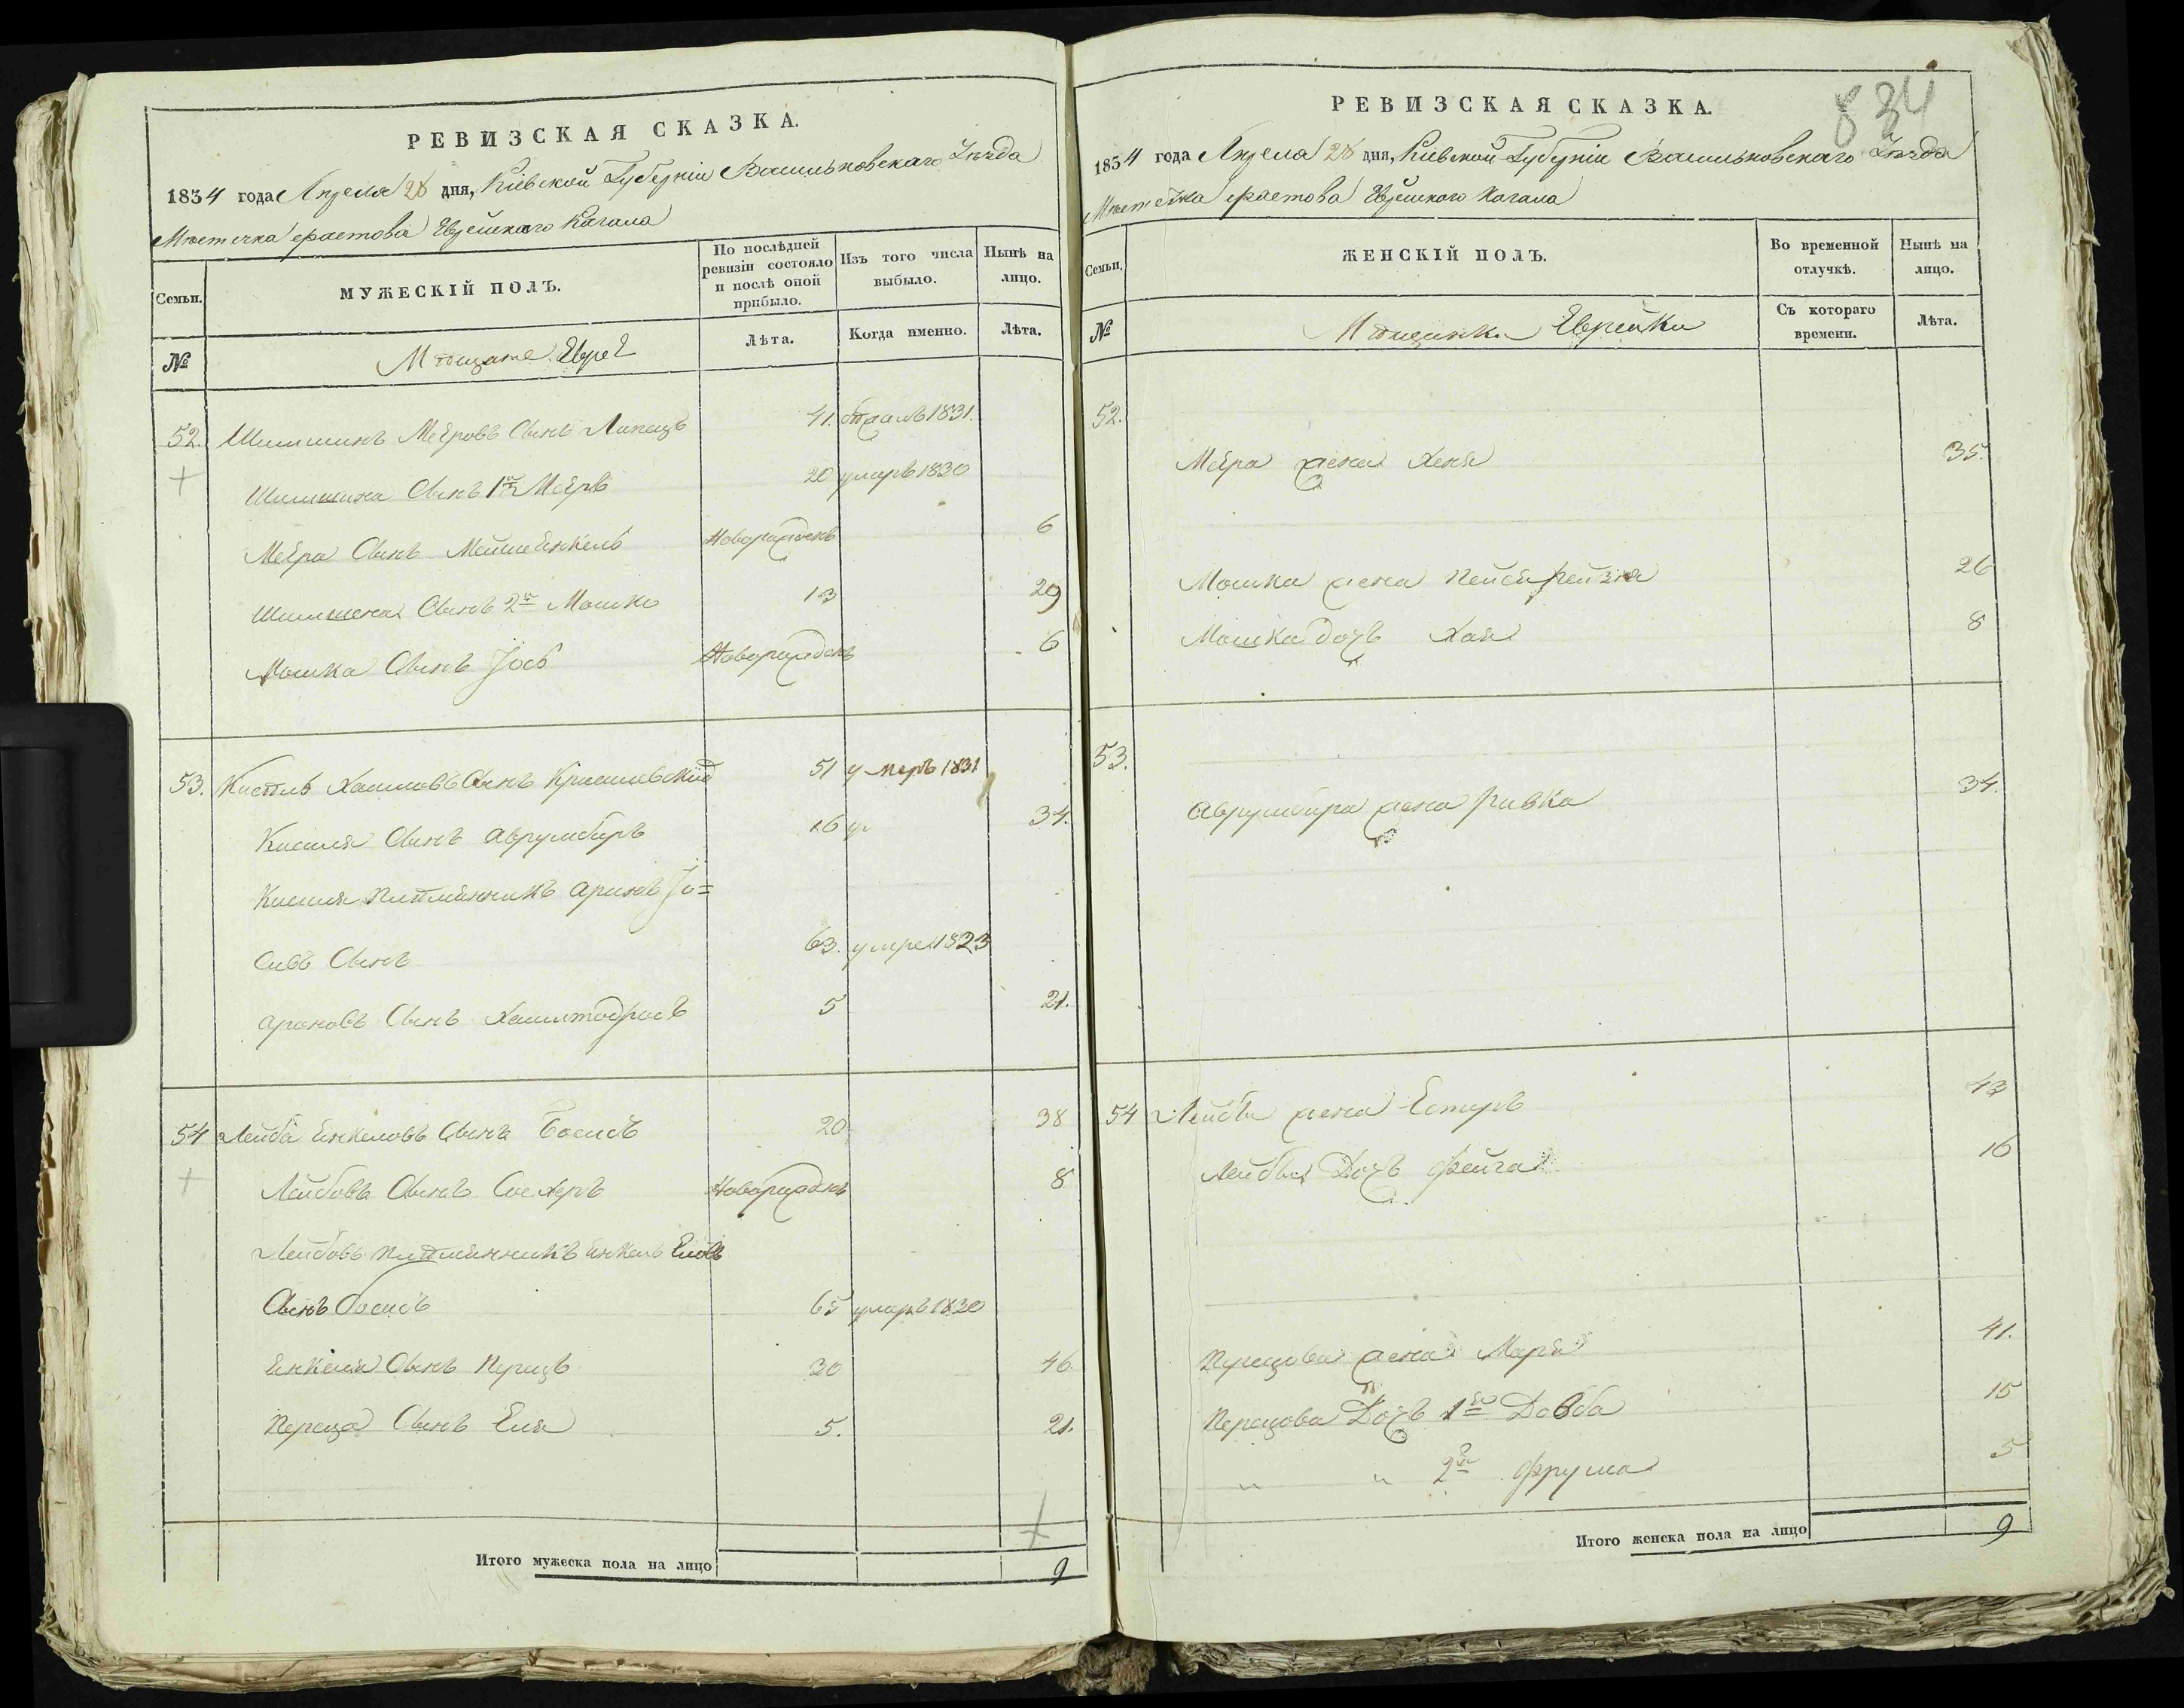 РЕВИЗСКАЯ СКАЗКА.
1834 года Апреля 28 дня, Кіевской Губерніи Васильковскаго Уѣзда
Мѣстечка Фастова Еврейскаго Кагала
Семьи.
МУЖЕСКІЙ ПОЛЪ.
По послѣдней ревизіи состояло и послѣ оной прибыло.
Изъ того числа выбыло.
Нынѣ на лицо.
№
Мѣщане Евреи
Лѣта.
Когда именно.
Лѣта.
52. Шимшинъ Меировъ Сынъ Липецъ 41. 1831.
Шимшина Сынъ 1й Меиръ 20 умеръ 1830
Меира Сынъ Мошиенкель Новорожденъ 6
Шимшена Сынъ 2й Мошко 13 29
Мошка Сынъ Іосъ Новорожденъ 6
53. Кисиль Хаимовъ Сынъ 51 умеръ 1831
Кисиля Сынъ Аврумберъ 16 34.
Кисиля племянникъ Аронъ Іо=
сивъ Сынъ 63. умре 1823
Ароновъ Сынъ 5 21.
54 Лейба Енкеловъ Сынъ 20 38
Лейбовъ Сынъ Сохеръ Новорожденъ 8
Лейбовъ племянникъ Енкель Еліовъ
Сынъ 65 умеръ 1830
Енкеля Сынъ Перецъ 30 46.
Переца Сынъ Еля 5. 21.
Итого мужеска пола на лицо 9
834
РЕВИЗСКАЯ СКАЗКА.
1834 года Апреля 28 дня, Кіевской Губерніи Васильковскаго Уѣзда
Мѣстечка Фастова Еврейскаго Кагала
Семьи.
ЖЕНСКІЙ ПОЛЪ.
Во временной отлучкѣ.
Нынѣ на лицо.
№
Мѣщанки Еврейки
Съ котораго времени.
Лѣта.
52.
Меира жена Хеня 35.
Мошка жена Пейся Рейзля 26
Мошка дочь Хая 8
53.
Аврумбера жена Ривка 34.
54 Лейбы жена Естеръ 43
Лейбы Дочь Фейга 16
Перецова жена Маря 41.
Перецова Дочь 1я Доба 15
" " 2я Фрума 5
Итого женска пола на лицо 9